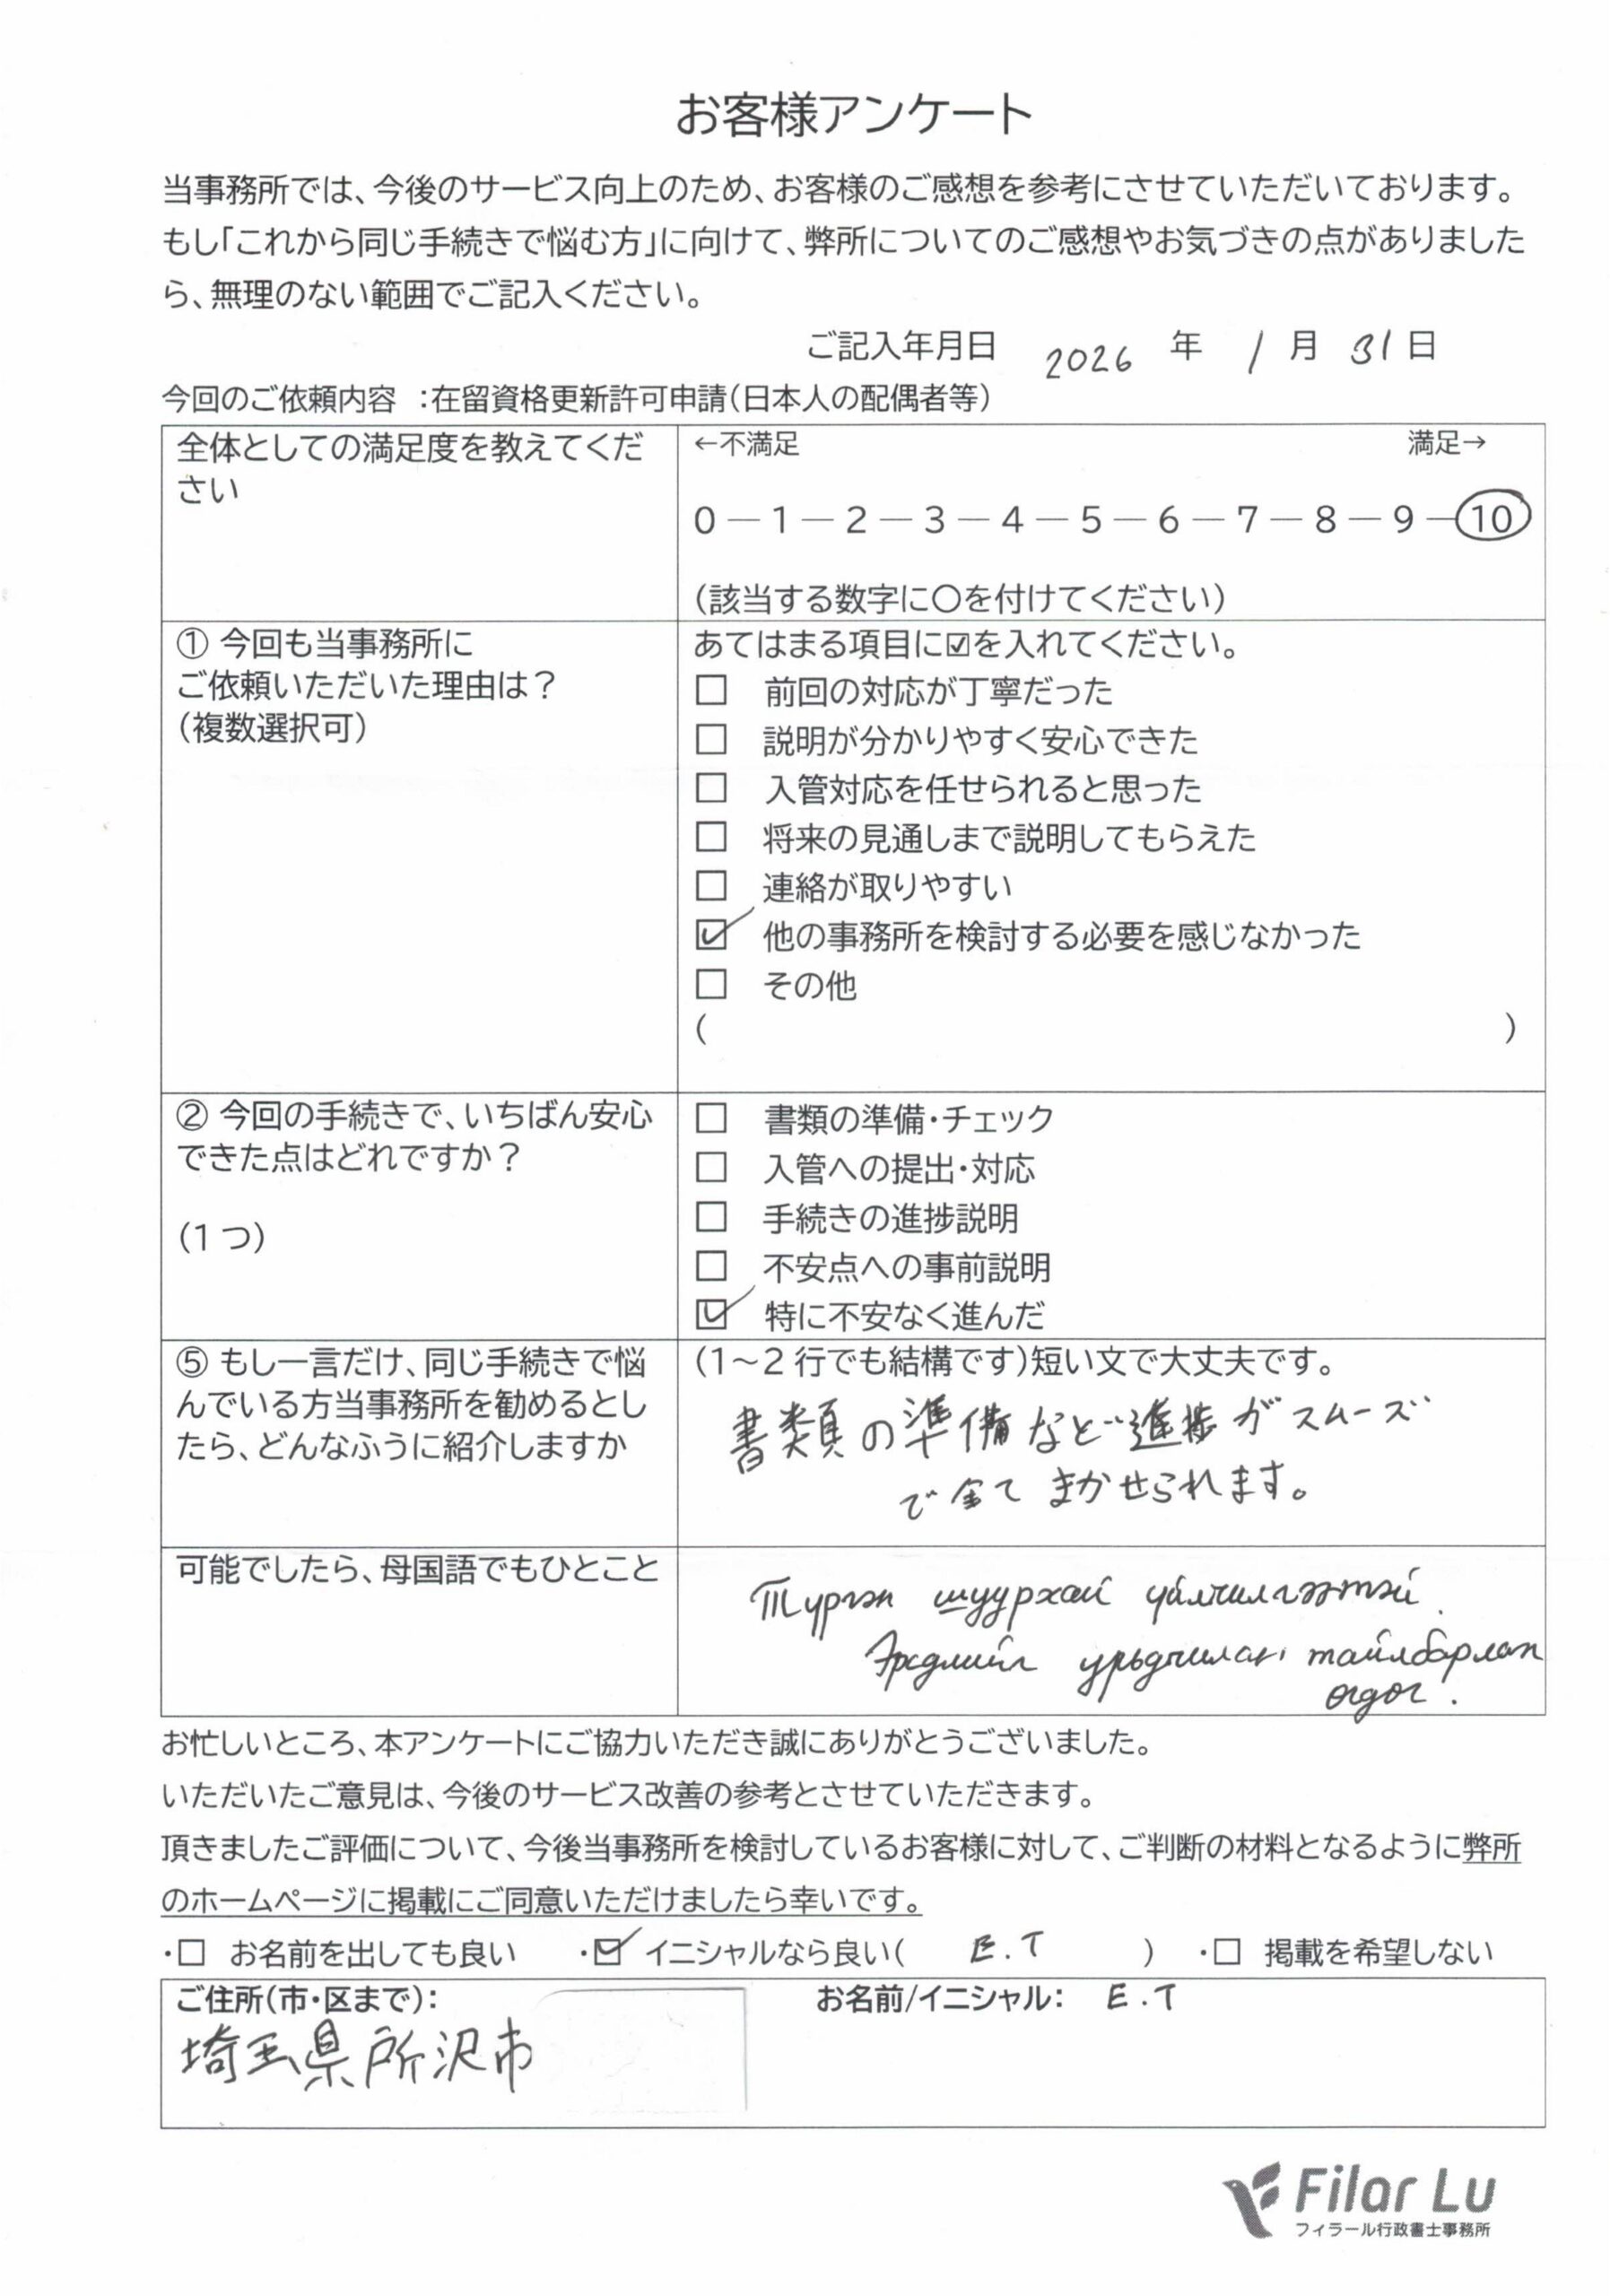 お客様アンケート
当事務所では、今後のサービス向上のため、お客様のご感想を参考にさせていただいております。
もし「これから同じ手続きで悩む方」に向けて、弊所についてのご感想やお気づきの点がありました
ら、無理のない範囲でご記入ください。
ご記入年月日 2026 年 1 月 31 日
今回のご依頼内容 ：在留資格更新許可申請（日本人の配偶者等）
全体としての満足度を教えてくだ
さい
←不満足 満足→
0 ― 1 ― 2 ― 3 ― 4 ― 5 ― 6 ― 7 ― 8 ― 9 ― 10
（該当する数字に〇を付けてください）
① 今回も当事務所に
ご依頼いただいた理由は？
（複数選択可）
あてはまる項目に☑を入れてください。
□ 前回の対応が丁寧だった
□ 説明が分かりやすく安心できた
□ 入管対応を任せられると思った
□ 将来の見通しまで説明してもらえた
□ 連絡が取りやすい
☑ 他の事務所を検討する必要を感じなかった
□ その他
( )
② 今回の手続きで、いちばん安心
できた点はどれですか？
（1 つ）
□ 書類の準備・チェック
□ 入管への提出・対応
□ 手続きの進捗説明
□ 不安点への事前説明
☑ 特に不安なく進んだ
⑤ もし一言だけ、同じ手続きで悩
んでいる方当事務所を勧めるとし
たら、どんなふうに紹介しますか
（1～2 行でも結構です）短い文で大丈夫です。
書類の準備など進捗がスムーズ
で全てまかせられます。
可能でしたら、母国語でもひとこと
Түргэн шуурхай үйлчилгээтэй.
Эрсдлийг урьдчилан тайлбарлан
өгдөг.
お忙しいところ、本アンケートにご協力いただき誠にありがとうございました。
いただいたご意見は、今後のサービス改善の参考とさせていただきます。
頂きましたご評価について、今後当事務所を検討しているお客様に対して、ご判断の材料となるように弊所
のホームページに掲載にご同意いただけましたら幸いです。
・□ お名前を出しても良い ・☑ イニシャルなら良い（ E.T ） ・□ 掲載を希望しない
ご住所（市・区まで）： お名前/イニシャル： E.T
埼玉県所沢市
Filar Lu
フィラール行政書士事務所